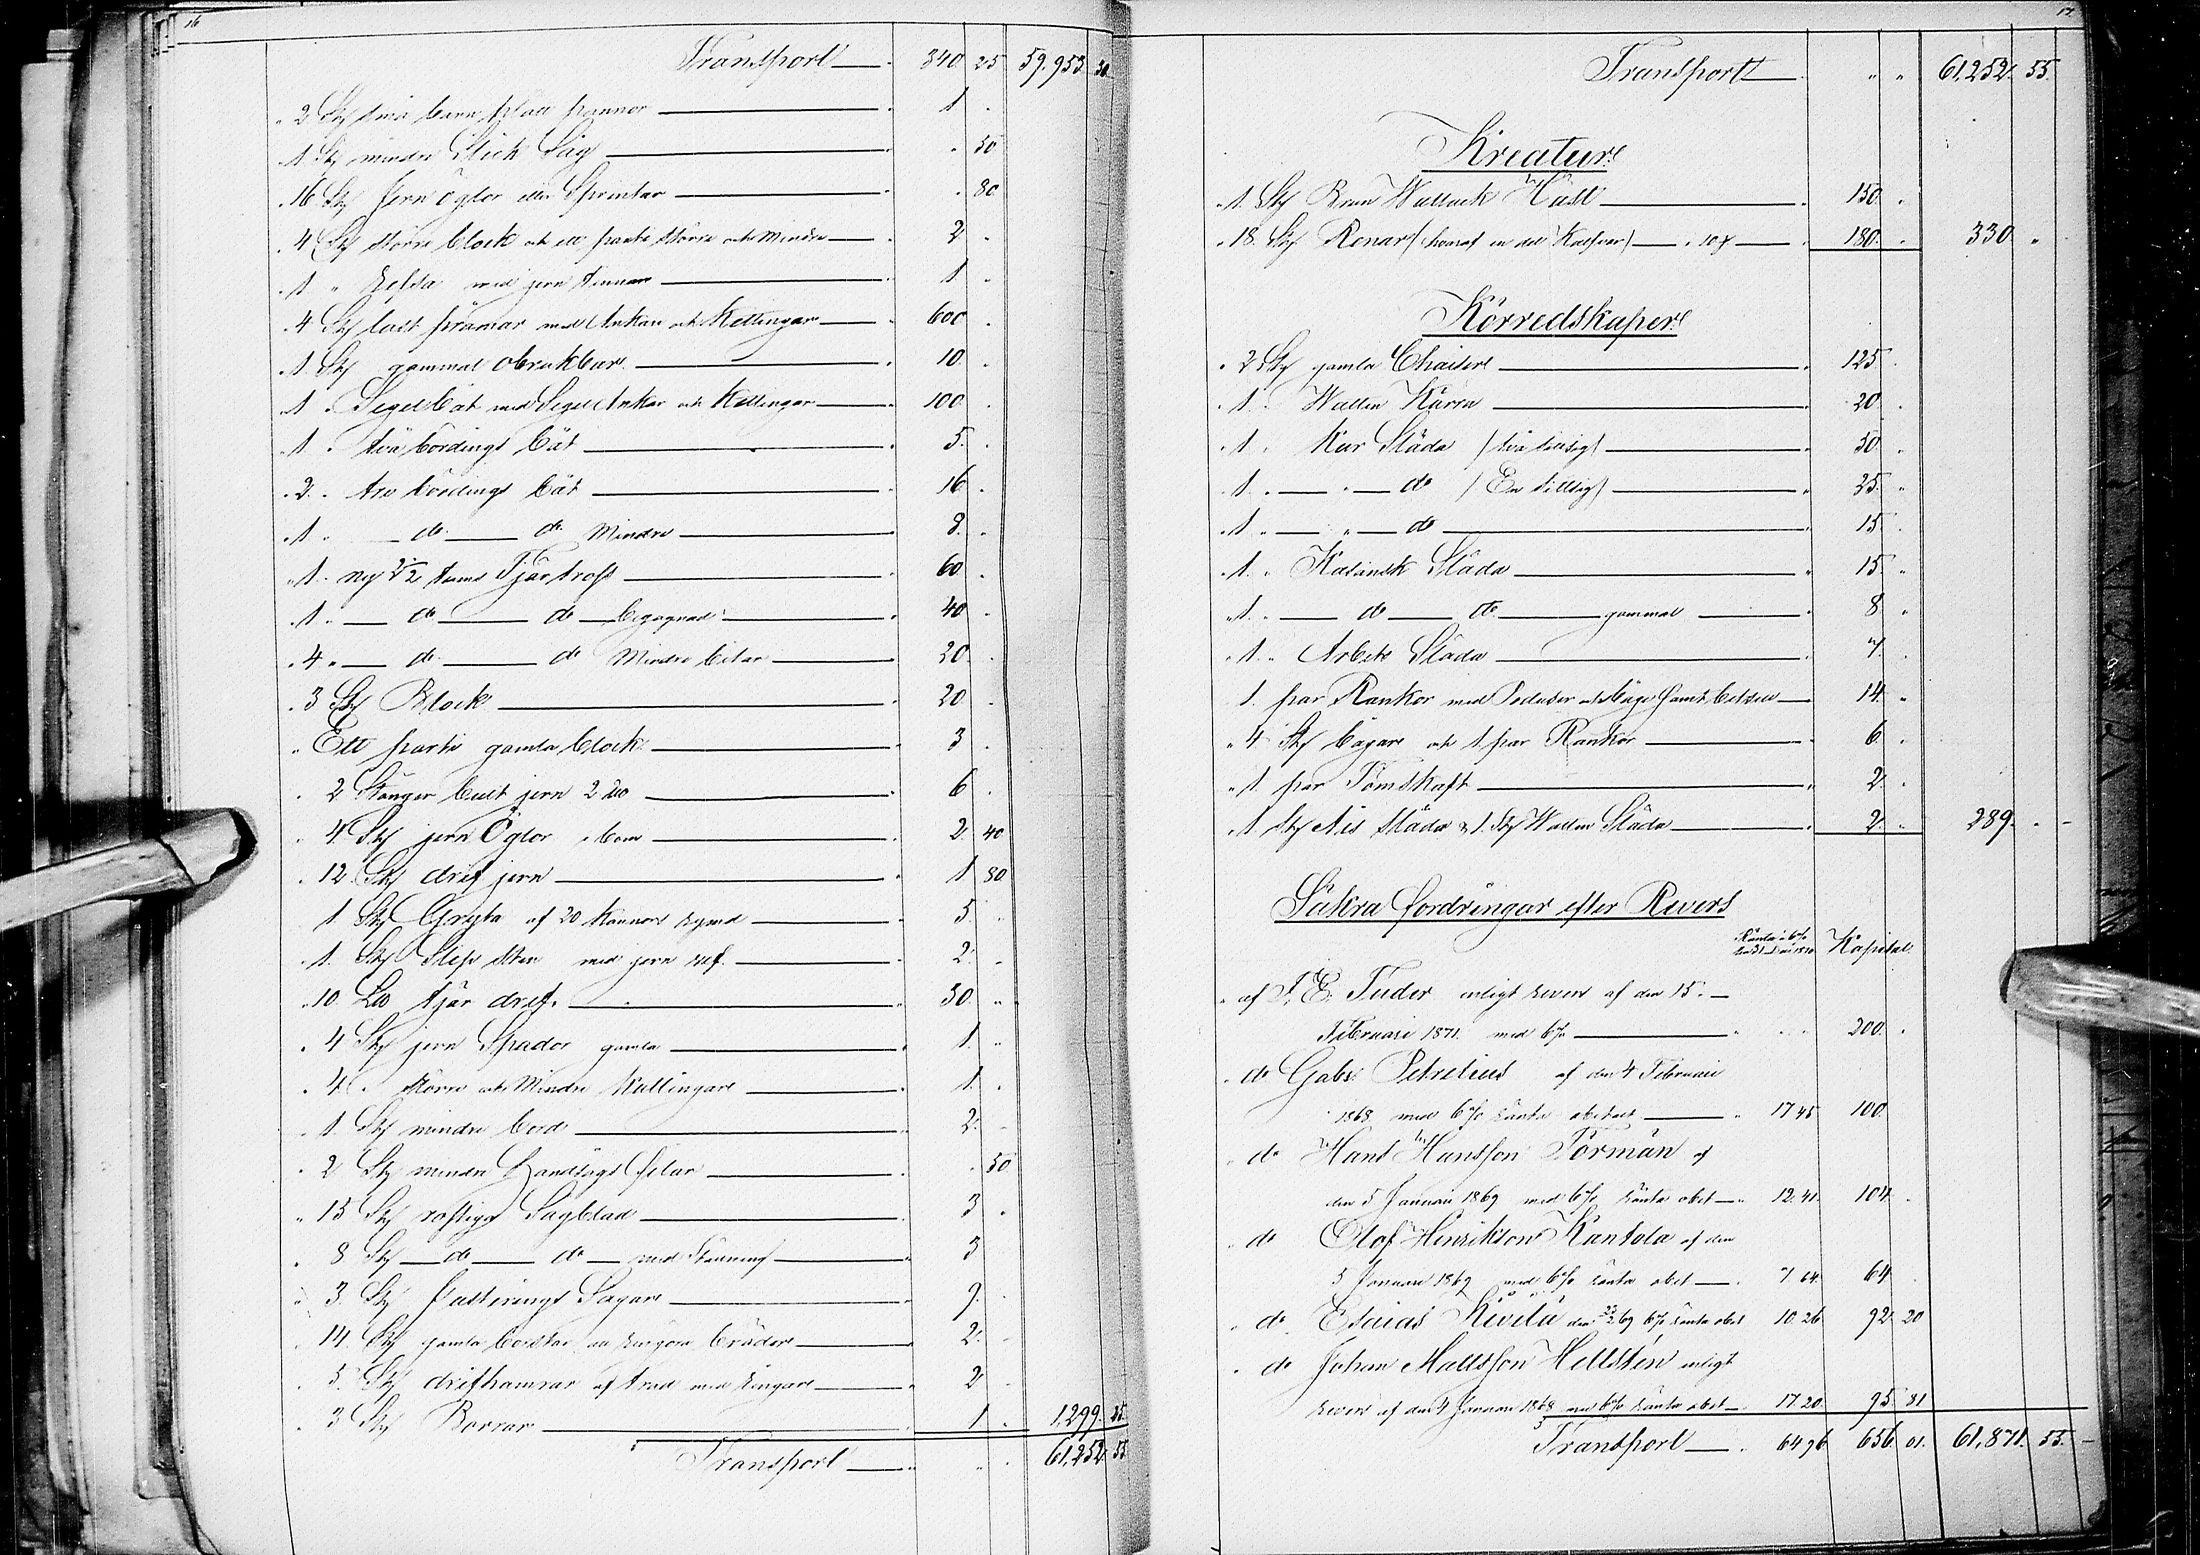 16
Transport 340 25 59.953 30
2 Stk små barn platt pannor 1
1 Stk mindre Stick Såg 50
16 Stk Jern öglor eller Sprintar 80
4 Stk större block och ett parti större och mindre 2
1 " med jern 1
4 Stk last pråmar med Ankar och Kettingar 600
1 Stk gammal obrukbar 10
1 " Segelbåt med Segel Ankar och Kettingar 100
1 " två bördings båt 5
2 " tre bördings båt 16
1 " do do Mindre 8
1 " ny 2 1/2 tums Tjär tross 60
1 " do do begagnad 40
4 " do do Mindre bitar 20
3 Stk Block 20
Ett parti gamla block 3
2 Stänger bult jern 2 Lb 6
4 Stk jern Öglor 2 40
12 Stk drif jern 1 80
1 Stk Gryta af 20 Kannors rymd 5
1 Stk Slip sten med jern vef 2
10 Lb tjär dref 30
4 Stk jern Spador gamla 1
4 " större och Mindre Kättingar 1
1 Stk mindre bord 2
2 Stk mindre Handsågs filar 50
15 Stk rostiga Sågblad 3
8 Stk do do med Ställning 3
3 Stk Justerings Sågar 9
14 Stk gamla borstar 2
5 Stk drifhamrar af träd med ringar 2
3 Stk Borrar 1 1,299 25
Transport 61,252 55
17
Transport " " 61,252 55
Kreatur
1 Stk Brun Wallack Häst 150
18 Stk Renar (hvaraf en del Kalfvar) 10 180 330
Körredskaper
2 Stk gamla Chaiser 125
1 " Watten Kärra 20
1 " Kur Släda (två sitsig) 50
1 " do (En sittsig) 25
1 " do 15
1 " Kasansk Släda 15
1 " do do gammal 8
1 " Arbets Släda 7
1 par Rankor med och båge samt betsel 14
4 Stk bågar och 1 par Rankor 6
1 par Tömskaft 2
1 Stk Släda & 1 Stk Watten Släda 2 289
Säkra Fordringar efter Revers
Kapital
af J. E. Tuder enligt revers af den 15
Februari 1871 med 6% 200
do Gabr. Petrelius af den 4 Februari
1868 med 6% ränta obetalt 17 45 100
do Hans Hansson Törmän af
den 5 Januari 1869 med 6% ränta obet 12.41 104
do Olof Henrikson Kantola af den
5 Januari 1869 med 6% ränta obet 7 64 64
do Esaias Kivelä den 22/2 69 6% ränta obet 10.26 92 20
do Johan Mattsson Hellstén enligt
revers af den 4 Januari 1868 med 6% ränta obet 17.20 95 81
Transport 64 96 656 01 61,871 55